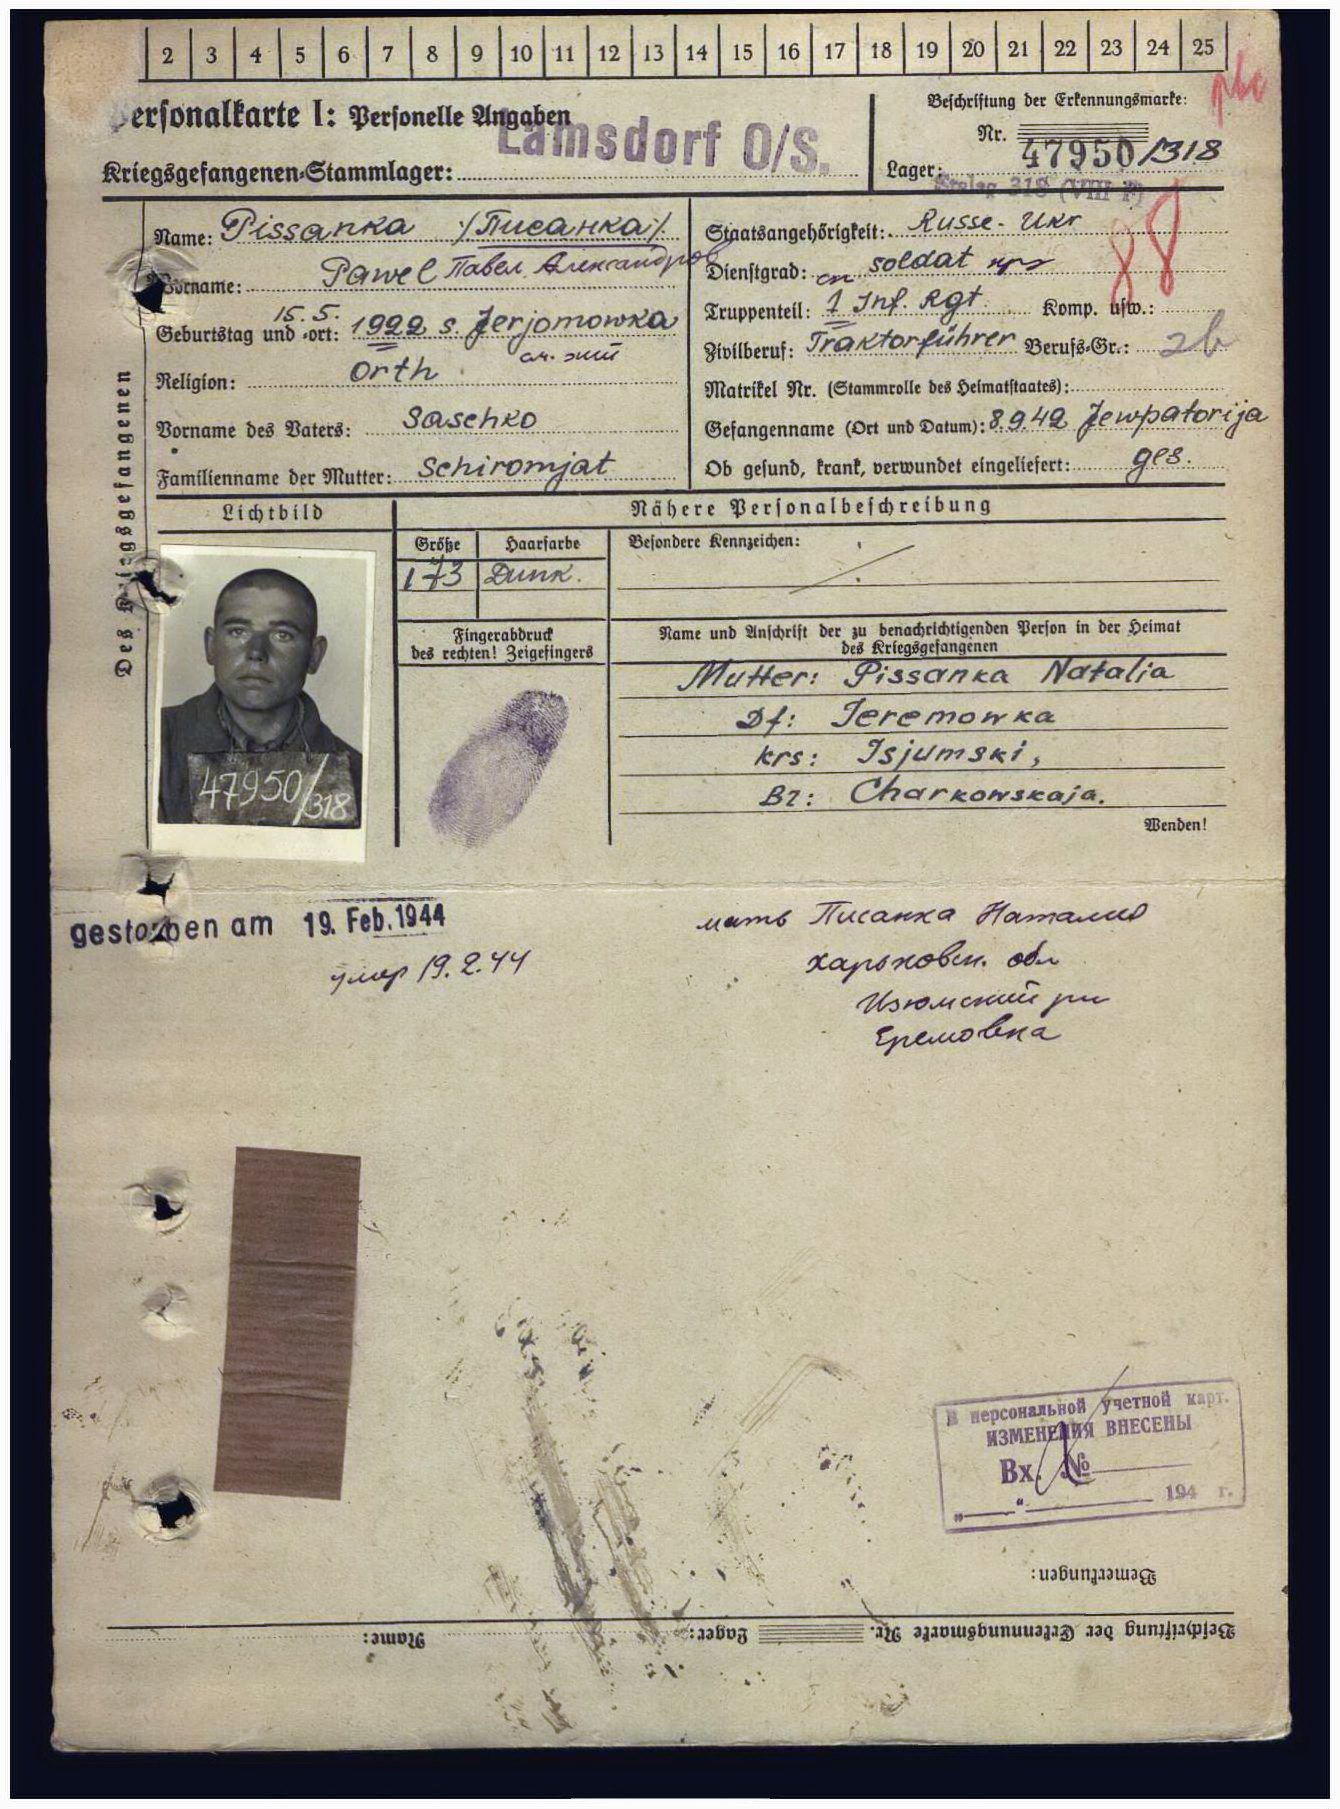 2 3 4 5 6 7 8 9 10 11 12 13 14 15 16 17 18 19 20 21 22 23 24 25
Personalkarte I: Personelle Angaben
Lamsdorf O/S.
Kriegsgefangenen-Stammlager:
Beschriftung der Erkennungsmarke:
Nr. 47950/318
Lager: Stalag 318 (VIII F)
88
Des Kriegsgefangenen
Name: Pissanka /Писанка/
Vorname: Pawel Павел Александров
Geburtstag und -ort: 15.5. 1922 s. Jerjomowka
Religion: Orth
Vorname des Vaters: Saschko
Familienname der Mutter: Schiromjat
Staatsangehörigkeit: Russe- Ukr
Dienstgrad: soldat
Truppenteil: 1 Inf. Rgt. Komp. usw.:
Zivilberuf: Traktorführer Berufs-Gr.: 2b
Matrikel Nr. (Stammrolle des Heimatstaates):
Gefangenname (Ort und Datum): 8.9.42 Jewpatorija
Ob gesund, krank, verwundet eingeliefert: ges.
Lichtbild
Nähere Personalbeschreibung
Größe Haarfarbe Besondere Kennzeichen:
173 Dunk.
Fingerabdruck
des rechten! Zeigefingers
Name und Anschrift der zu benachrichtigenden Person in der Heimat
des Kriegsgefangenen
Mutter: Pissanka Natalia
Df: Jeremowka
Krs: Isjumski,
Bz: Charkowskaja.
Wenden!
47950/318
gestorben am 19. Feb. 1944
умер 19.2.44
мать Писанка Наталия
Харьковск. обл
Изюмский рн
Еремовка
В персональной учетной карт.
ИЗМЕНЕНИЯ ВНЕСЕНЫ
Вх. №
„ “ 194 г.
Bemerkungen:
Beschriftung der Erkennungsmarke Nr. Lager: Name: